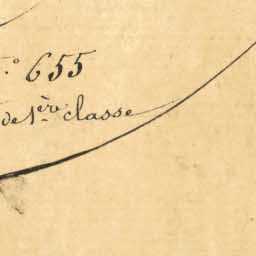 .° 655
de 1.ère classe